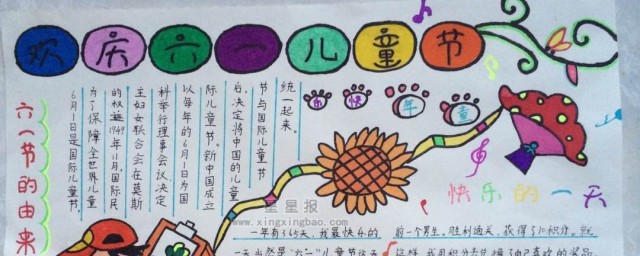 欢庆六一儿童节
六一节的由来
6月1日是国际儿童节。
为了保障全世界儿童
的权益1949年11月,国际民
主妇女联合会在莫斯
科举行理事会议,决定
以每年的6月1日为国
际儿童节。新中国成立
后,决定将中国的儿童
节与国际儿童节
统一起来。
乐快年童
快乐的一天
一年有365天,我最快乐的
一天当然是"六一"儿童节这天
前一个男生。胜利通关,获得了10积分。就
这样,我用积分去兑换了自己喜欢的奖品
星星报
www.xingxingbao.com